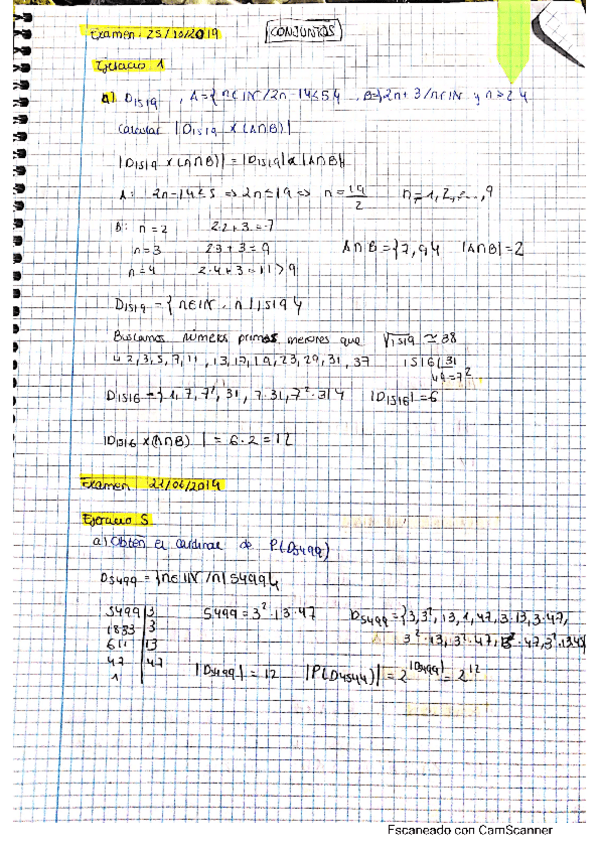 Examen 25/10/2019
CONJUNTOS
Ejercicio 1
a) D1519 , A={n∈IN/2n-14≤5} , B={2n+3/n∈IN y n≥2}
Calcular |D1519 x (A∩B)|
|D1519 x (A∩B)| = |D1519| x |A∩B|
A: 2n-14≤5 => 2n≤19 => n=19/2 n=1,2,...,9
B: n=2 2·2+3=7
n=3 2·3+3=9 A∩B={7,9} |A∩B|=2
n=4 2·4+3=11>9
D1519={n∈IN n|1519}
Buscamos números primos menores que √1519 ≃ 38
2,3,5,7,11,13,17,19,23,29,31,37 1516 31
49=7²
D1516={1,7,7²,31,7·31,7²·31} |D1516|=6
|D1516 x(A∩B)| = 6·2=12
Examen 22/06/2019
Ejercicio 5
a) Obtén el cardinal de P(D5499)
D5499={n∈IN/n|5499}
5499 3 5499=3²·13·47 D5499={3,3²,13,1,47,3·13,3·47,
1833 3 3²·13,3²·47,
611 13
47 47 |D5499|=12 |P(D4544)|=2^|D5499|=2^12
1
Escaneado con CamScanner